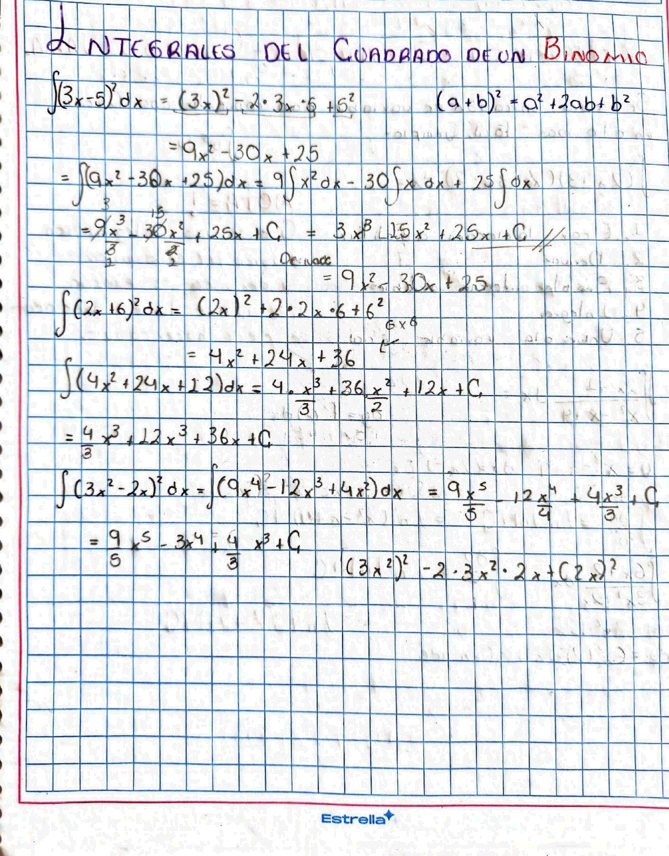 INTEGRALES DEL CUADRADO DE UN BINOMIO
∫(3x-5)² dx = (3x)² - 2·3x·5 + 5² (a+b)² = a² + 2ab + b²
= 9x² - 30x + 25
= ∫(9x² - 30x + 25)dx = 9∫x² dx - 30∫x dx + 25∫dx
= 9x³/3 - 30x²/2 + 25x + C = 3x³ - 15x² + 25x + C //
= 9x² - 30x + 25
∫(2x+6)² dx = (2x)² + 2·2x·6 + 6²
6x6
= 4x² + 24x + 36
∫(4x² + 24x + 12)dx = 4·x³/3 + 36 x²/2 + 12x + C
= 4/3 x³ + 12x³ + 36x + C
∫(3x² - 2x)² dx = ∫(9x⁴ - 12x³ + 4x²)dx = 9x⁵/5 - 12x⁴/4 + 4x³/3 + C
= 9/5 x⁵ - 3x⁴ + 4/3 x³ + C
(3x²)² - 2·3x²·2x + (2x)²
Estrella